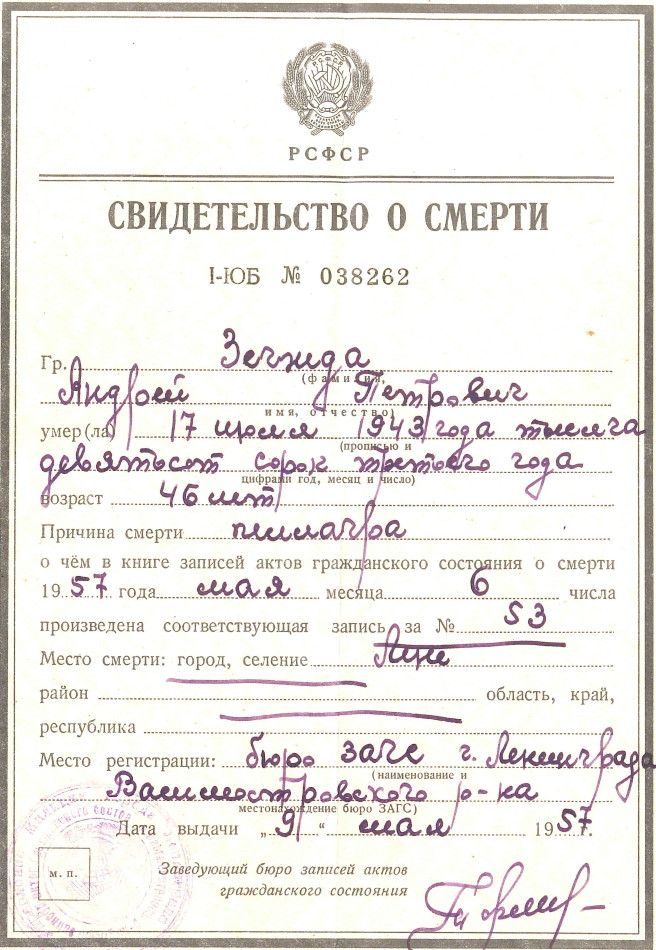 РСФСР
РСФСР
СВИДЕТЕЛЬСТВО О СМЕРТИ
I-ЮБ № 038262
Гр. Зегжда
(фамилия,
Андрей Петрович
имя, отчество)
умер(ла) 17 июля 1943 года тысяча
(прописью и
девятьсот сорок третьего года
цифрами год, месяц и число)
возраст 46 лет
Причина смерти пеллагра
о чём в книге записей актов гражданского состояния о смерти
1957 года мая месяца 6 числа
произведена соответствующая запись за № 53
Место смерти: город, селение
район область, край,
республика
Место регистрации: бюро загс г. Ленинграда
(наименование и
Василеостровского р-на
местонахождение бюро ЗАГС)
Дата выдачи „9“ мая 1957.
м. п.
Заведующий бюро записей актов
гражданского состояния